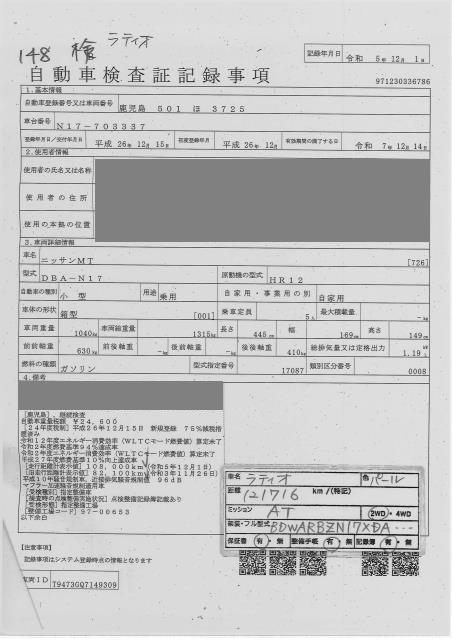 148 検 ラティオ
記録年月日 令和 5年 12月 1日
自動車検査証記録事項
971230336786
1.基本情報
自動車登録番号又は車両番号 鹿児島 501 ほ 3725
車台番号 N17-703337
登録年月日/交付年月日 平成 26年 12月 15日 初度登録年月 平成 26年 12月 有効期間の満了する日 令和 7年 12月 14日
2.使用者情報
使用者の氏名又は名称
使用者の住所
使用の本拠の位置
3.車両詳細情報
車名 ニッサンMT [726]
型式 DBA-N17 原動機の型式 HR12
自動車の種別 小型 用途 乗用 自家用・事業用の別 自家用
車体の形状 箱型 [001] 乗車定員 5人 最大積載量 -kg
車両重量 1040kg 車両総重量 1315kg 長さ 445cm 幅 169cm 高さ 149cm
前前軸重 630kg 前後軸重 -kg 後前軸重 -kg 後後軸重 410kg 総排気量又は定格出力 1.19
燃料の種類 ガソリン 型式指定番号 17087 類別区分番号 0008
4.備考
[鹿児島],継続検査
自動車重量税額 ¥24,600
[24年度税制] 平成26年12月15日 新規登録 75%減税措置済み
令和12年度エネルギー消費効率(WLTCモード燃費値)算定未了
令和2年度燃費基準94%達成車
令和2年度エネルギー消費効率(WLTCモード燃費値)算定未了
平成27年度燃費基準10%向上達成車
[走行距離計表示値]108,000km(令和5年12月1日)
[旧走行距離計表示値]82,100km(令和3年11月26日)
平成10年騒音規制車、近接排気騒音規制値 96dB
マフラー加速騒音規制適用車
[受検種別]指定整備車
[検査時の点検整備実施状況]点検整備記録簿記載あり
[受検形態]指定整備工場
[整備工場コード]97-00653
以下余白
車名 ラティオ 色 パール
距離 121716 km/(特記)
ミッション AT 2WD・4WD
載袋・フル型式 BDWARBZN17XDA---
保証書 有・無 整備手帳 有・無 記録簿 有・無
[注意事項]
記録事項はシステム登録時点の情報となります
車両ID T9473GQ7149309